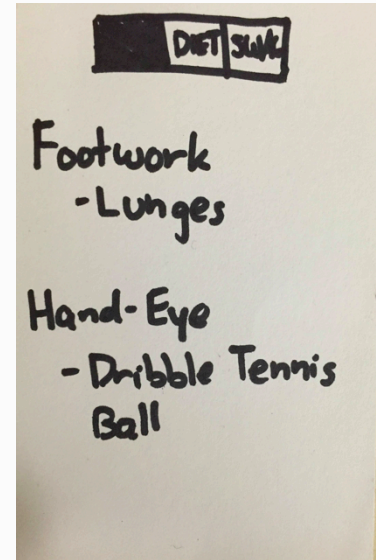 DIET
Footwork
- Lunges
Hand-Eye
- Dribble Tennis
Ball